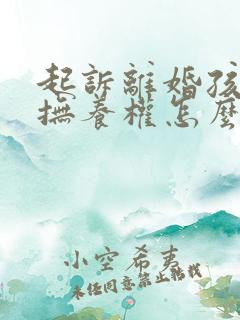 起訴離婚孩
撫養權怎麼
小空希夷
未经同意禁止转载